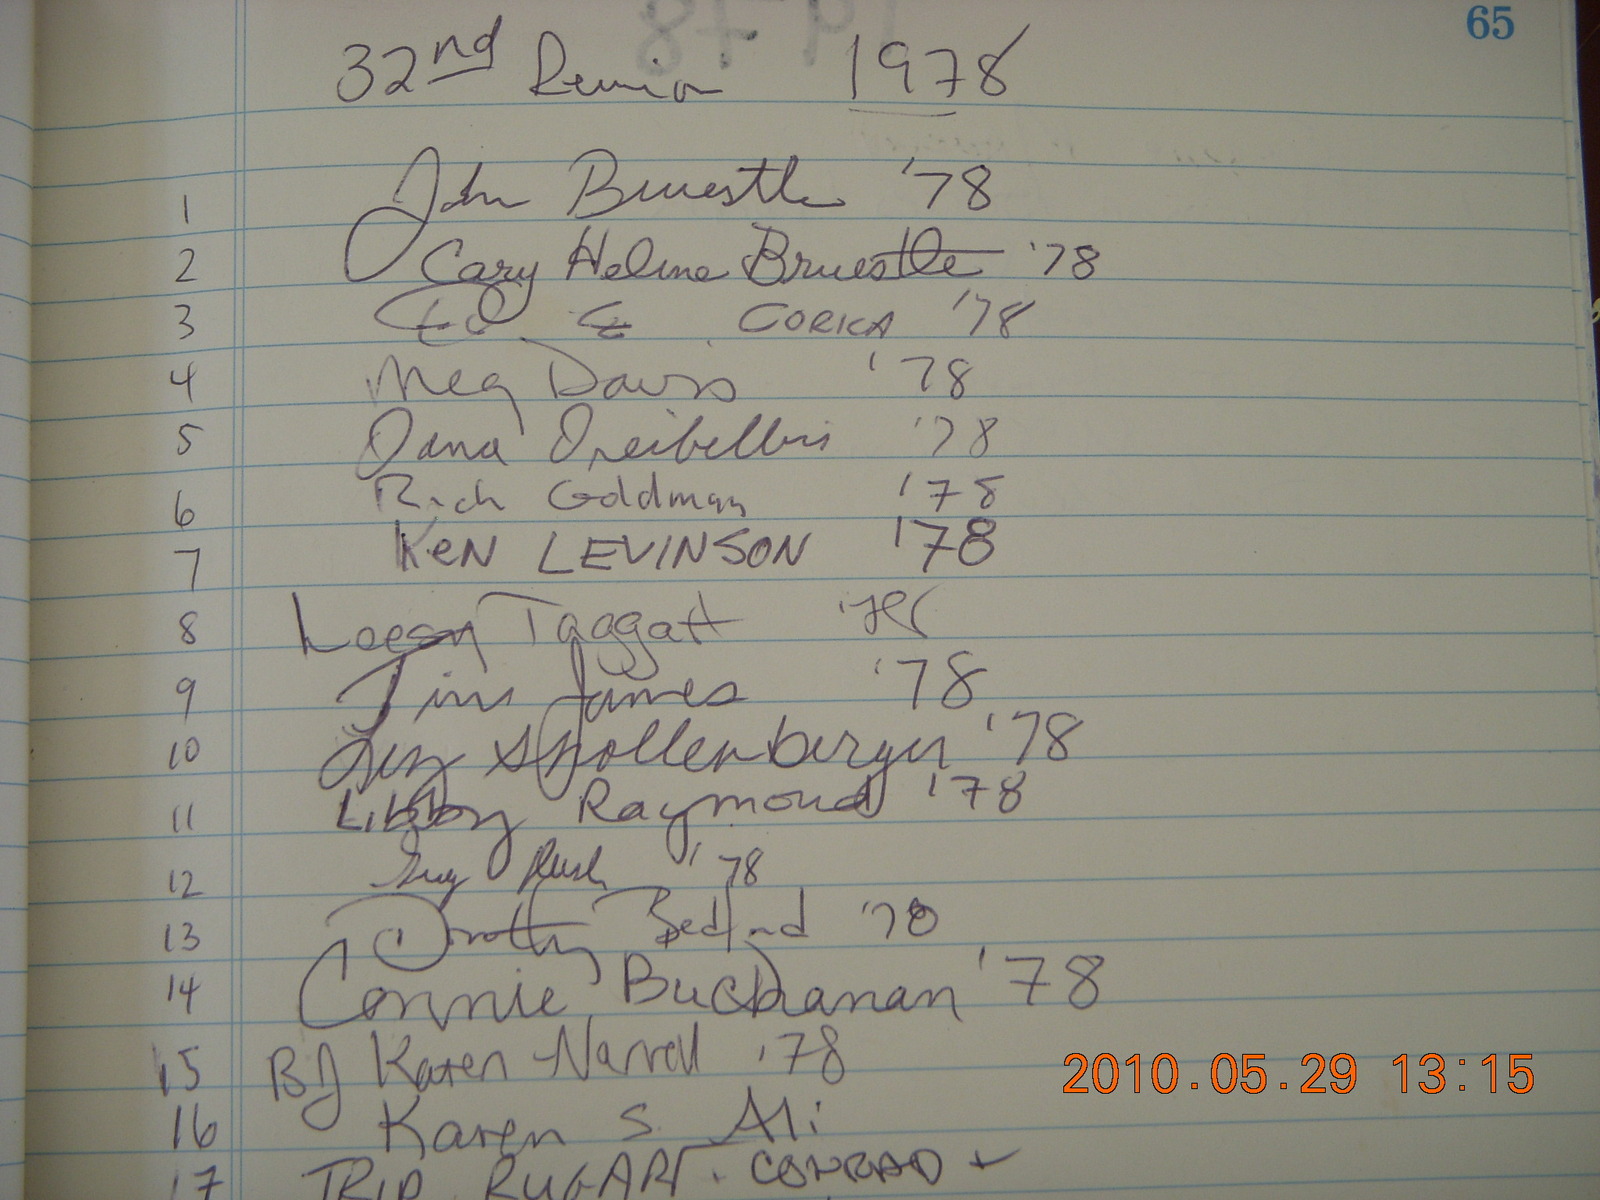 65
32nd Reunion 1978
1 John Bruestle '78
2 Cary Helme Bruestle '78
3 Ed CORICA '78
4 Meg Davis '78
5 Dana Dreibelbis '78
6 Rich Goldman '78
7 KEN LEVINSON '78
8 Taggart '78
9 Jim James '78
10 Shollenberger '78
11 Libby Raymond '78
12 Rush '78
13 Dorothy Bedford '78
14 Connie Buchanan '78
15 BJ Karen '78
16 Karen S. Ali
17 TRIP CONRAD +
2010.05.29 13:15